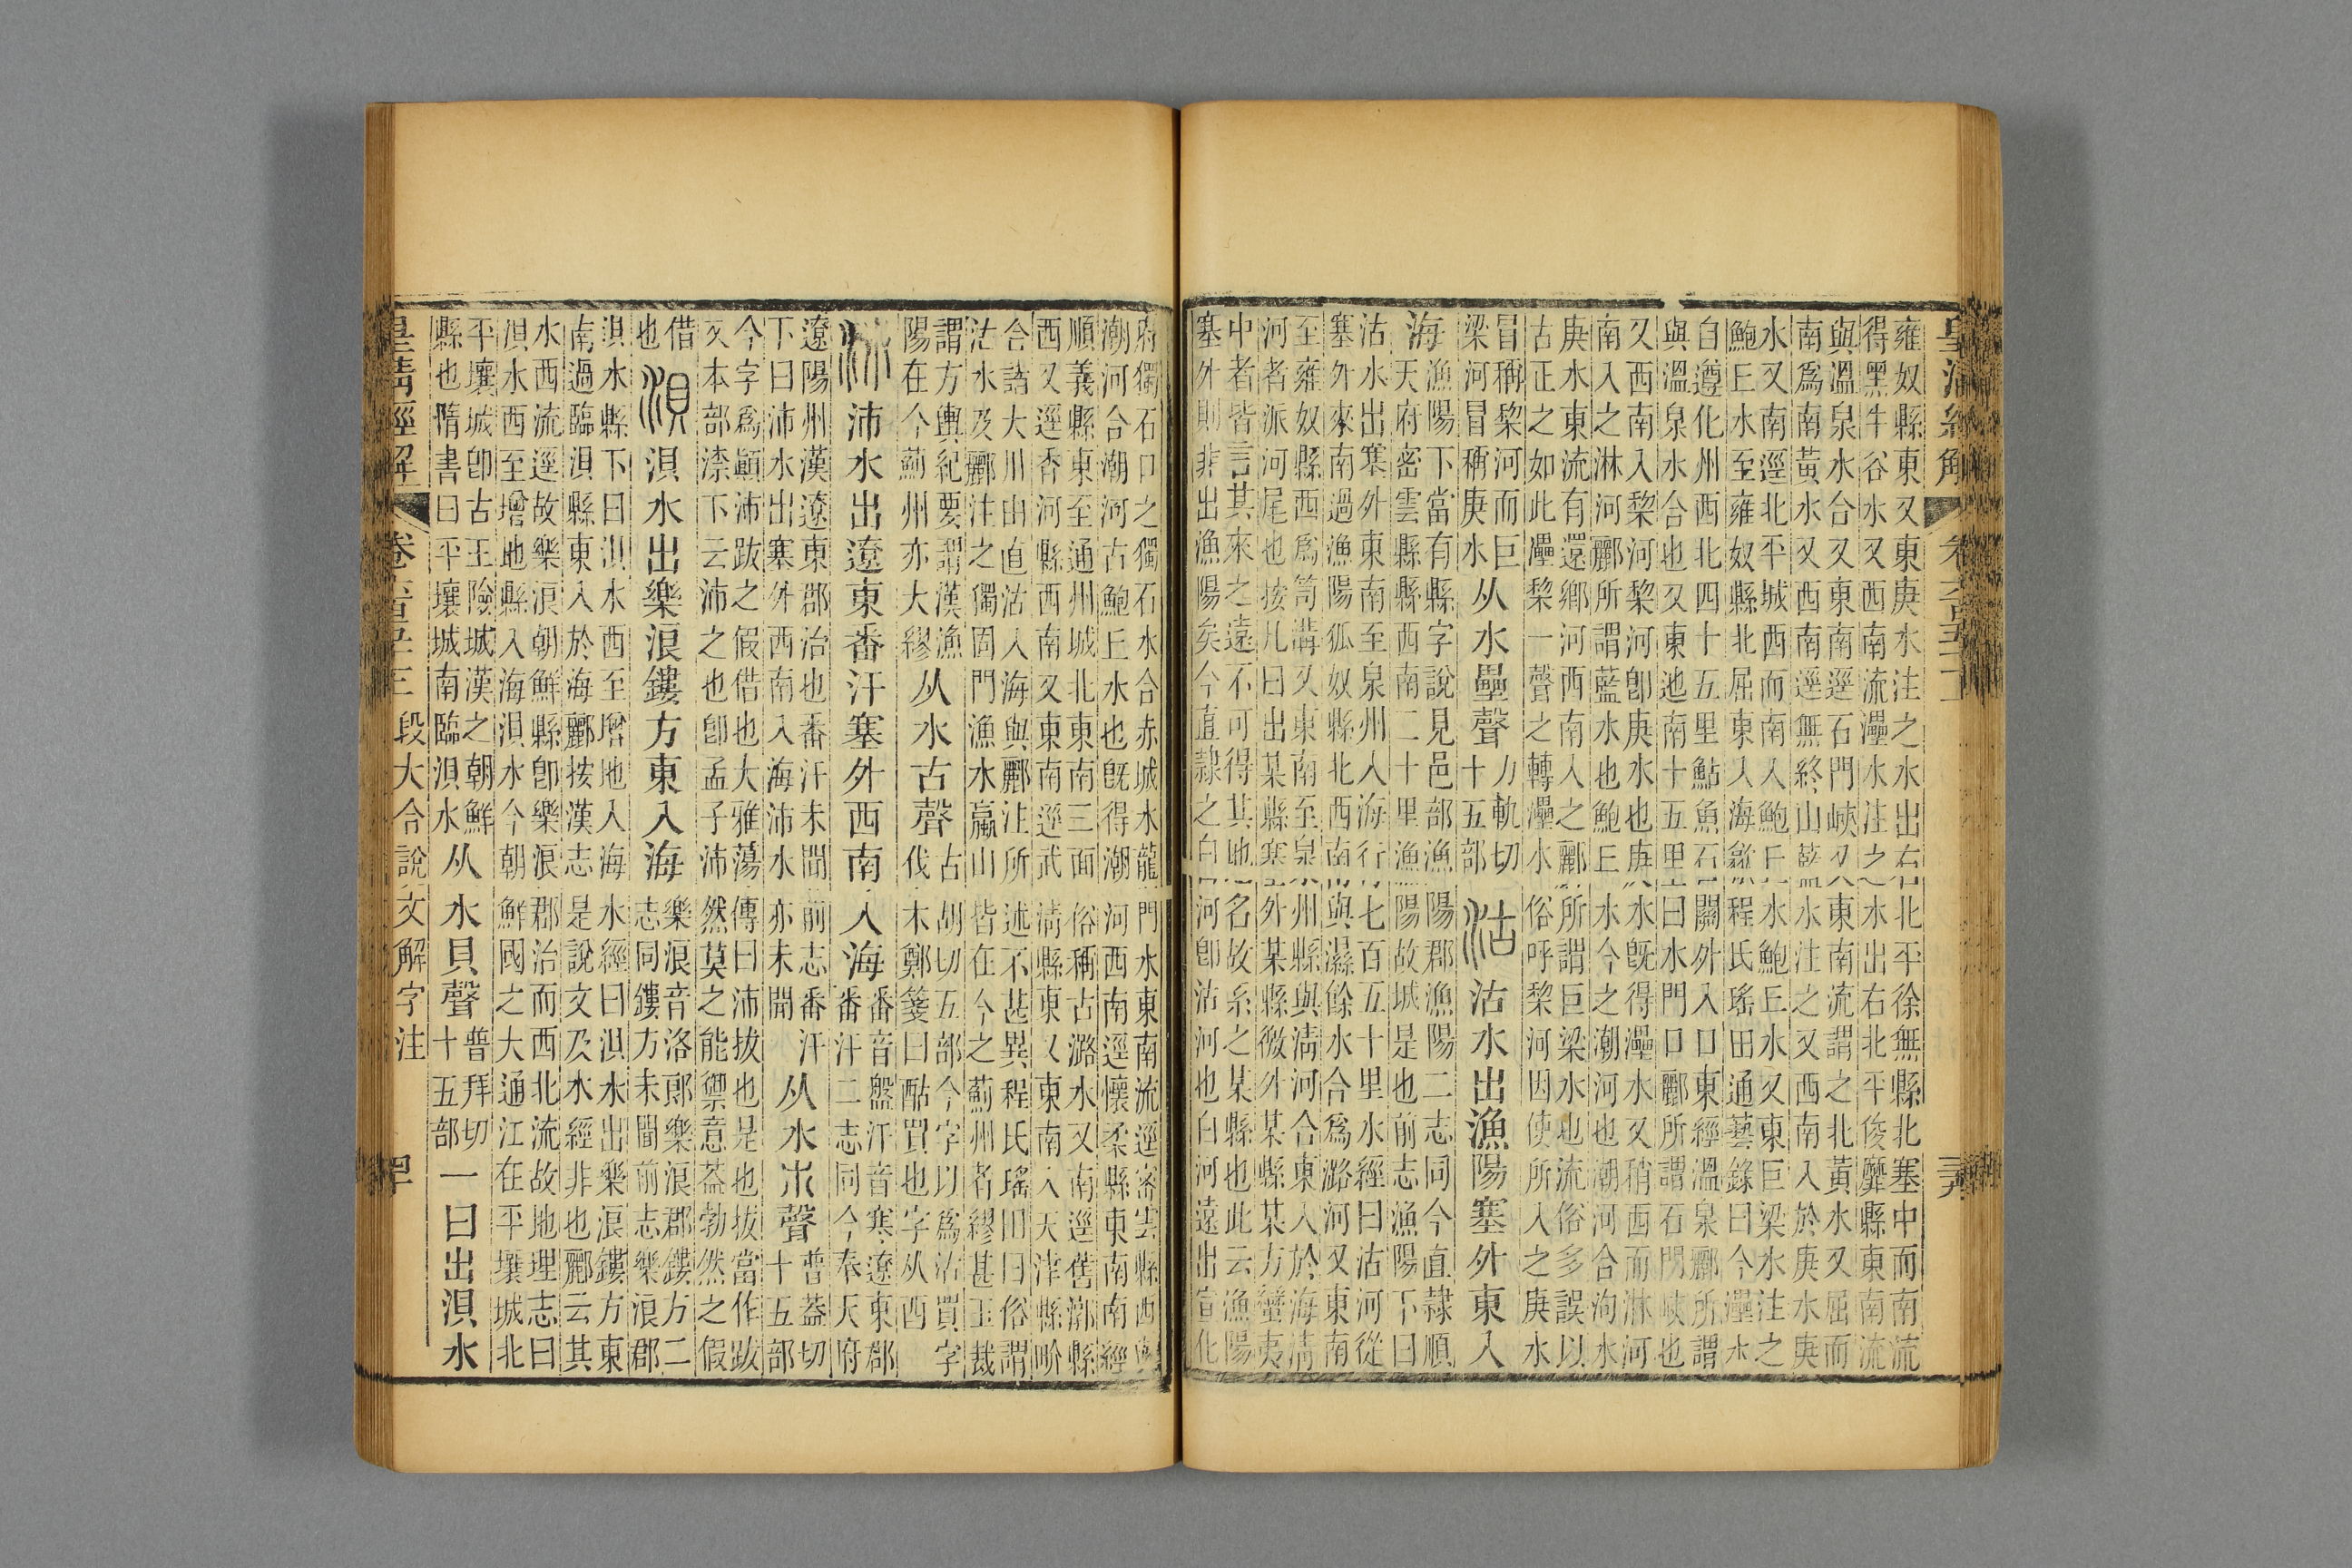 皇清經解 卷六百五十二 三九
雍奴縣東又東庚水注之水出右北平徐無縣北塞中而南流
得黑牛谷水又西南流灅水注之水出右北平俊靡縣東南流
與溫泉水合又東南逕石門峽又東南流謂之北黃水又屈而
南爲南黃水又西南逕無終山藍水注之又西南入於庚水庚
水又南逕北平城西而南入鮑丘水鮑丘水又東巨梁水注之
鮑丘水至雍奴縣北屈東入海㱃程氏瑤田通藝錄曰今灅水
自遵化州西北四十五里鮎魚石關外入口東經溫泉酈所謂
與溫泉水合也又東迆南十五里曰水門口酈所謂石門峽也
又西南入棃河棃河卽庚水也庚水旣得灅水又稍西而淋河
南入之淋河酈所謂藍水也鮑丘水今之潮河也潮河合泃水
庚水東流有還鄉河西南入之酈所謂巨梁水也流俗多誤以
古正之如此灅棃一聲之轉灅水俗呼棃河因使所入之庚水
冒稱棃河而巨
梁河冒稱庚水
从水壘聲
力軌切
十五部
沽 沽水出漁陽塞外東入
海
漁陽下當有縣字說見邑部漁陽郡漁陽二志同今直隸順
天府密雲縣縣西南二十里漁陽故城是也前志漁陽下曰
沽水出塞外東南至泉州入海行七百五十里水經曰沽河從
塞外來南過漁陽狐奴縣北西南與濕餘水合爲潞河又東南
至雍奴縣西爲笥溝又東南至泉州縣與淸河合東入於海淸
河者派河尾也按凡曰出某縣塞外某縣徼外某縣某方蠻夷
中者皆言其來之遠不可得其地名故系之某縣也此云漁陽
塞外則非出漁陽矣今直隸之白河卽沽河也白河遠出宣化
府獨石口之獨石水合赤城水龍門水東南流逕密雲縣西與
潮河合潮河古鮑丘水也旣得潮河西南逕懷柔縣東南南經
順義縣東至通州城北東南三面俗稱古潞水又南逕舊漷縣
西又逕香河縣西南又東南逕武淸縣東又東南入天津縣畍
合諸大川由直沽入海與酈注所述不甚異程氏瑤田曰俗謂
沽水及酈注之獨固門漁水嬴山皆在今之薊州者繆甚玉裁
謂方輿紀要謂漢漁
陽在今薊州亦大繆
从水古聲
古胡切五部今字以爲沽買字
伐木鄭箋曰酤買也字从酉
沛 沛水出遼東番汗塞外西南入海
番音盤汗音寒遼東郡
番汗二志同今奉天府
遼陽州漢遼東郡治也番汗未聞前志番汗
下曰沛水出塞外西南入海沛水亦未聞
从水巿聲
普葢切
十五部
今字爲顚沛跋之假借也大雅蕩傳曰沛拔也是也拔當作跋
又本部渿下云沛之也卽孟子沛然莫之能禦意葢勃然之假
借
也
浿 浿水出樂浪鏤方東入海
樂浪音洛郎樂浪郡鏤方二
志同鏤方未聞前志樂浪郡
浿水縣下曰浿水西至增地入海水經曰浿水出樂浪鏤方東
南過臨浿縣東入於海酈按漢志是說文及水經非也酈云其
水西流逕故樂浪朝鮮縣卽樂浪郡治而西北流故地理志曰
浿水西至增地縣入海浿水今朝鮮國之大通江在平壤城北
平壤城卽古王險城漢之朝鮮
縣也隋書曰平壤城南臨浿水
从水貝聲
普拜切
十五部
一曰出浿水
皇清經解 卷六百五十二 段大令說文解字注 四十